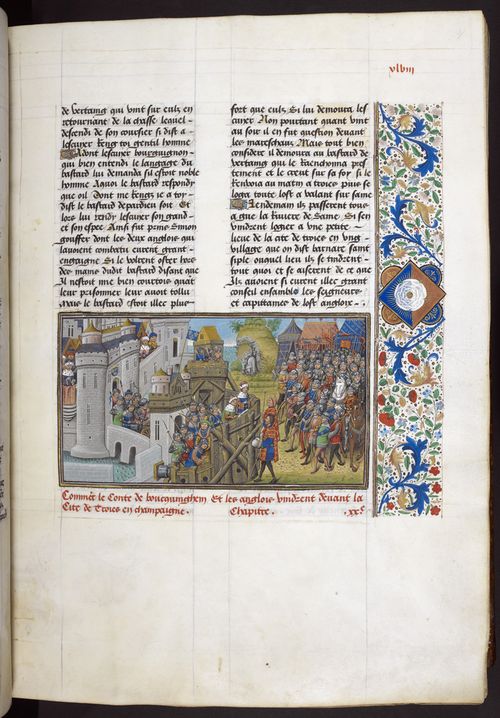 xlviii
de vertaing qui vint sur eulz en
retournant de la chasse lequel
descendi de son coursier si dist a
lescuier Rengz toy gentil homme
Adont lescuier bourguignon
qui bien entendi le langaige du
bastard lui demanda sil estoit noble
homme Aquoy le bastard respondy
que oil Dont me Rengz Je a toy
dist le bastard de par dieu soit Et
lors lui rendy lescuier son gand
et son espee Ainsi fut prins Simon
gouffer dont les deux anglois qui
lauoient combatu eurent grant
engaigne Si le volrent ofter hors
des mains dudit bastard disant que
Il nestoit mie bien courtois quant
leur prisonnier leur auoit tollu
mais le bastard estoit illec plus
fort que eulz Si lui demoura les
cuier Non pourtant quant vint
au soir il en fut question deuant
les mareschaux Mais tout bien
considere il demoura au bastard de
vertaing qui le Raenchonna pres
tement et le creut sur sa foy si le
Renvoia au matin a troies puis se
loga toute lost a valant sur Same
Lendemain ilz passerent tous
a gue la Riuiere de Saine Si sen
vindrent logier a vne petite
lieue de la cite de troies en vng
village que on dist barnart saint
simple ouquel lieu ilz se tindrent
tout quoy et se aiserent de ce que
Ilz auoient si eurent illec grant
conseil ensamble les seigneurs
et capitaines de lost anglois
Comment le Conte de boucquinghem Et les anglois vindrent deuant la
Cite de Troies en champaigne. Chapitre. xxe